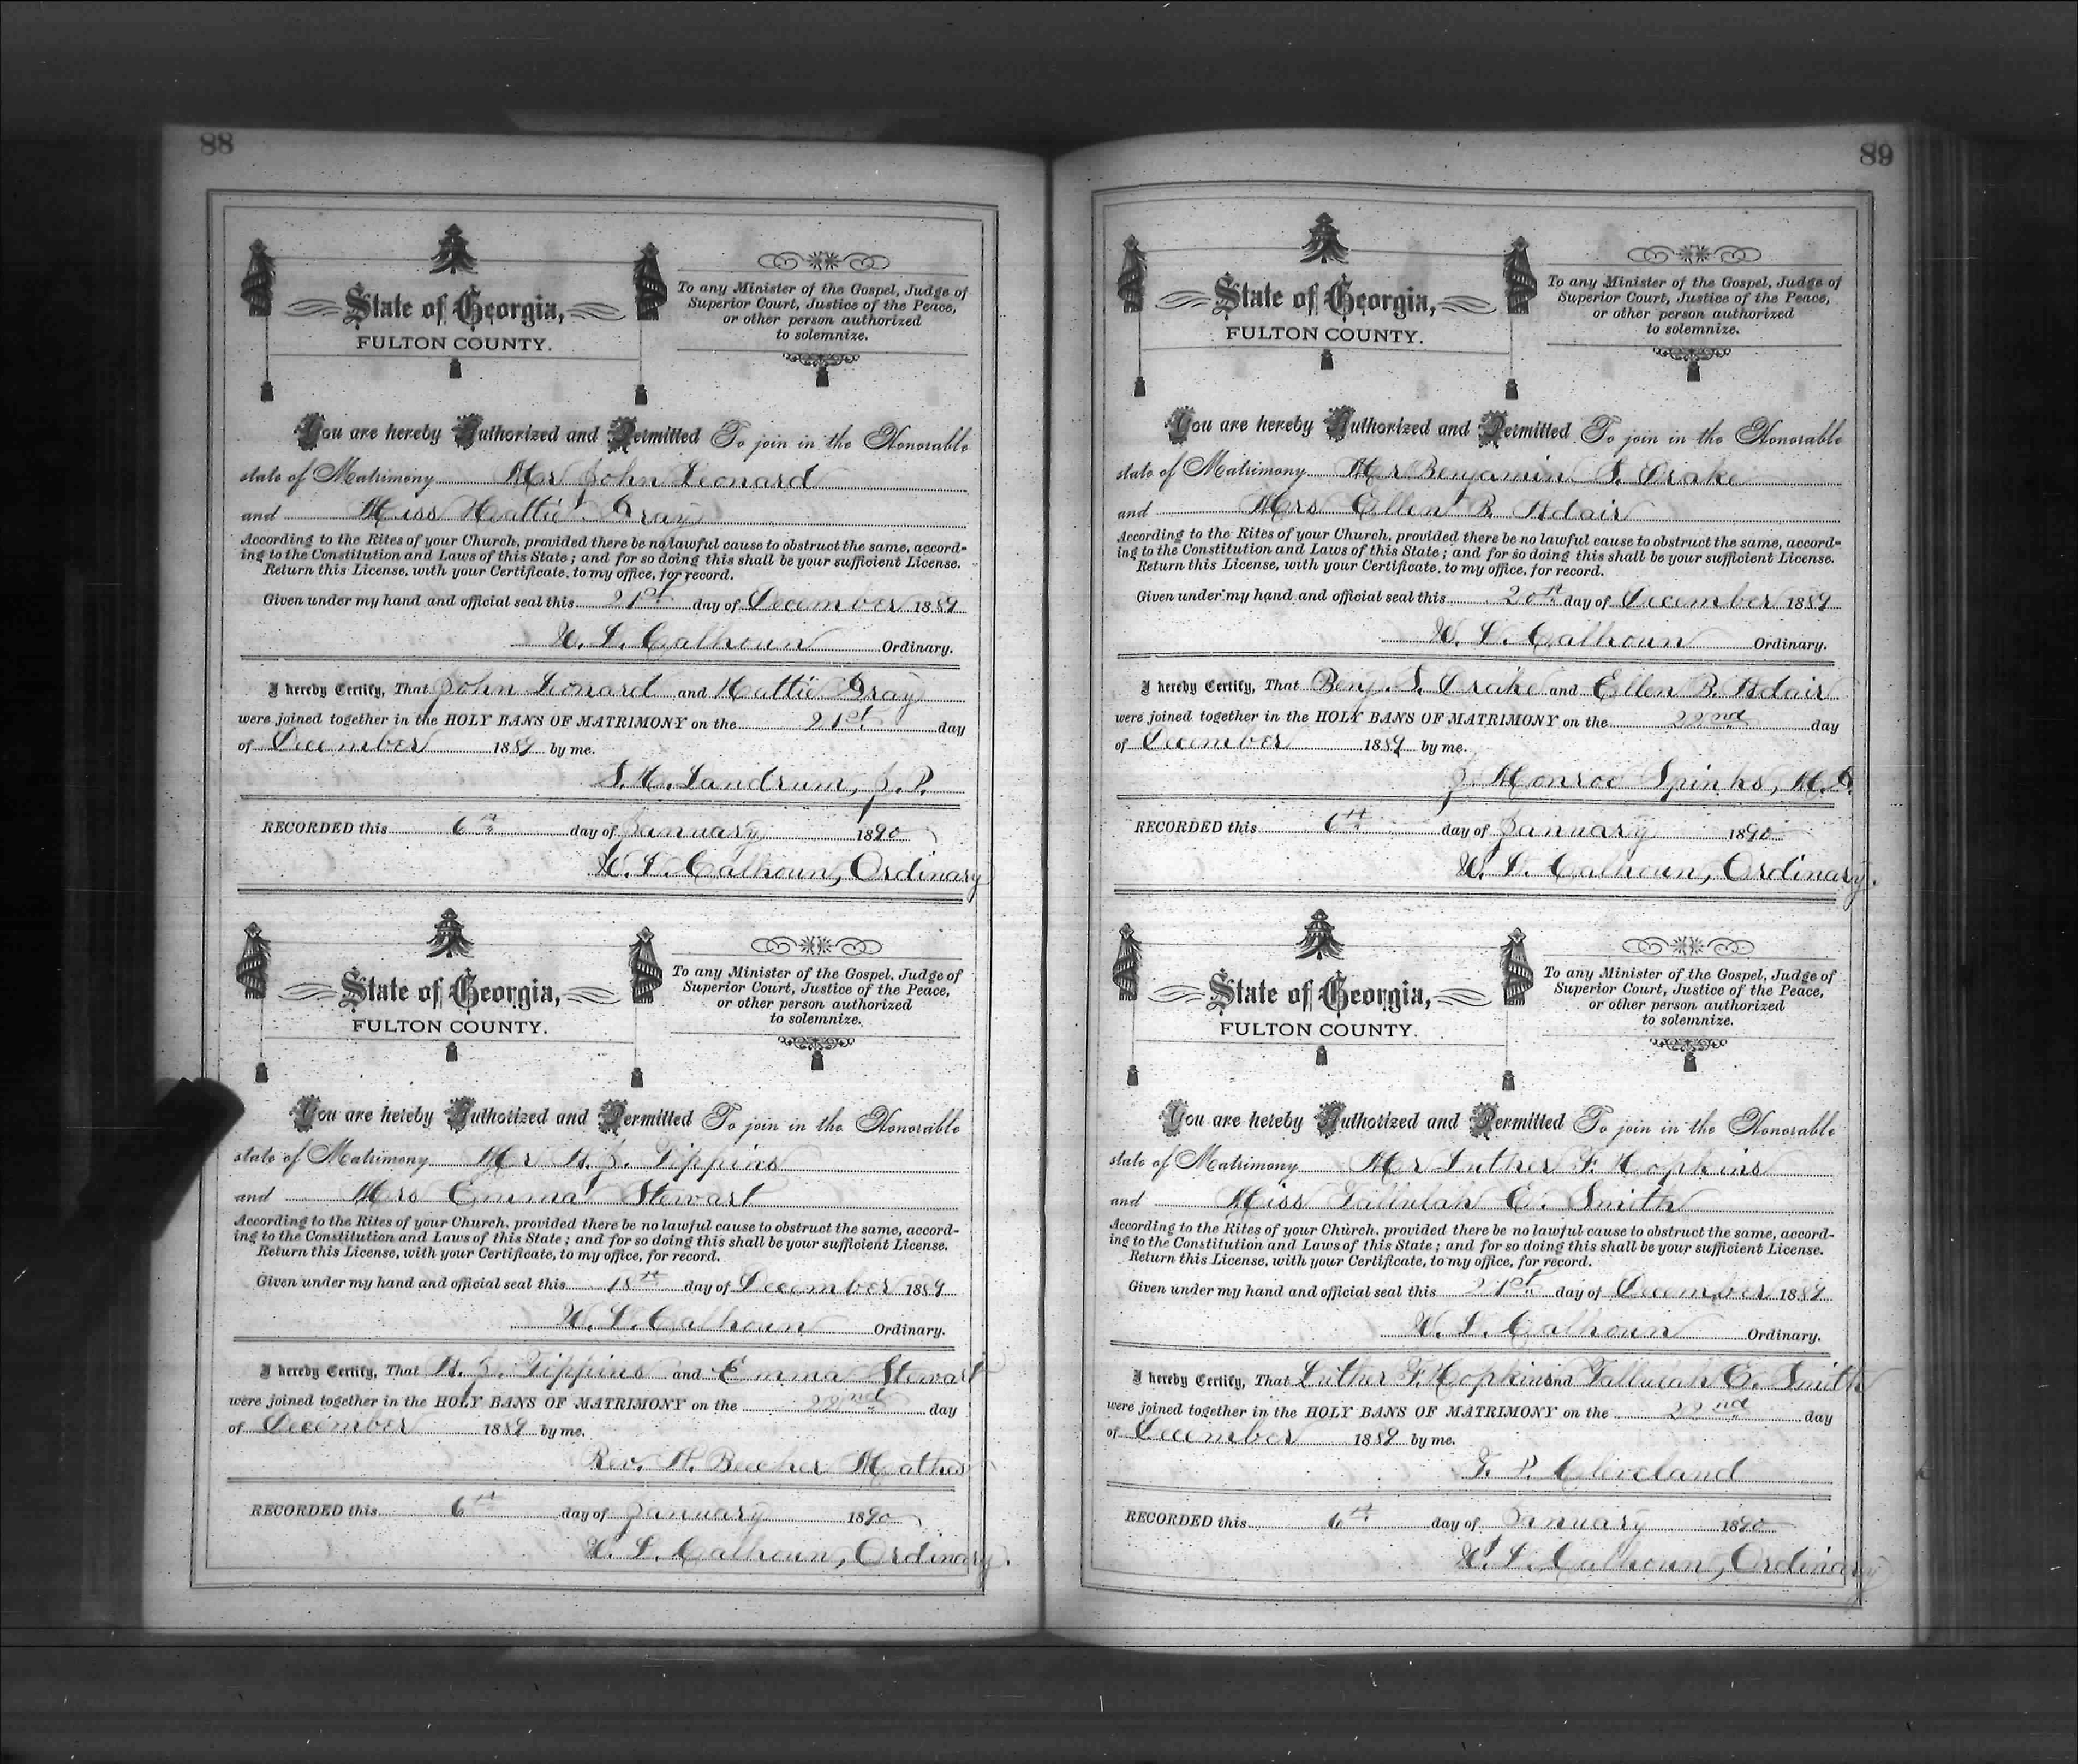 88
State of Georgia,
FULTON COUNTY.
To any Minister of the Gospel, Judge of
Superior Court, Justice of the Peace,
or other person authorized
to solemnize.
You are hereby Authorized and Permitted To join in the Honorable
state of Matrimony Mr John Leonard
and Miss Hattie Gray
According to the Rites of your Church, provided there be no lawful cause to obstruct the same, accord-
ing to the Constitution and Laws of this State; and for so doing this shall be your sufficient License.
Return this License, with your Certificate, to my office, for record.
Given under my hand and official seal this 21st day of December 1889
W. L. Calhoun Ordinary.
I hereby Certify, That John Leonard and Hattie Gray
were joined together in the HOLY BANS OF MATRIMONY on the 21st day
of December 1889 by me.
S. H. Landrum, J. P.
RECORDED this 6th day of January 1890
W. L. Calhoun, Ordinary
State of Georgia,
FULTON COUNTY.
To any Minister of the Gospel, Judge of
Superior Court, Justice of the Peace,
or other person authorized
to solemnize.
You are hereby Authorized and Permitted To join in the Honorable
state of Matrimony Mr H. J. Tippins
and Mrs Emma Stewart
According to the Rites of your Church, provided there be no lawful cause to obstruct the same, accord-
ing to the Constitution and Laws of this State; and for so doing this shall be your sufficient License.
Return this License, with your Certificate, to my office, for record.
Given under my hand and official seal this 18th day of December 1889
W. L. Calhoun Ordinary.
I hereby Certify, That H. J. Tippins and Emma Stewart
were joined together in the HOLY BANS OF MATRIMONY on the 22nd day
of December 1889 by me.
Rev. H. Beecher Mathes
RECORDED this 6th day of January 1890
W. L. Calhoun, Ordinary.
89
State of Georgia,
FULTON COUNTY.
To any Minister of the Gospel, Judge of
Superior Court, Justice of the Peace,
or other person authorized
to solemnize.
You are hereby Authorized and Permitted To join in the Honorable
state of Matrimony Mr Benjamin S. Drake
and Mrs Ellen B. Adair
According to the Rites of your Church, provided there be no lawful cause to obstruct the same, accord-
ing to the Constitution and Laws of this State; and for so doing this shall be your sufficient License.
Return this License, with your Certificate, to my office, for record.
Given under my hand and official seal this 20th day of December 1889
W. L. Calhoun Ordinary.
I hereby Certify, That Benj. S. Drake and Ellen B. Adair
were joined together in the HOLY BANS OF MATRIMONY on the 22nd day
of December 1889 by me.
J. Monroe Spinks, M. G.
RECORDED this 6th day of January 1890
W. L. Calhoun, Ordinary.
State of Georgia,
FULTON COUNTY.
To any Minister of the Gospel, Judge of
Superior Court, Justice of the Peace,
or other person authorized
to solemnize.
You are hereby Authorized and Permitted To join in the Honorable
state of Matrimony Mr Luther F. Hopkins
and Miss Tallulah E. Smith
According to the Rites of your Church, provided there be no lawful cause to obstruct the same, accord-
ing to the Constitution and Laws of this State; and for so doing this shall be your sufficient License.
Return this License, with your Certificate, to my office, for record.
Given under my hand and official seal this 21st day of December 1889
W. L. Calhoun Ordinary.
I hereby Certify, That Luther F. Hopkins and Tallulah E. Smith
were joined together in the HOLY BANS OF MATRIMONY on the 22nd day
of December 1889 by me.
T. P. Cleveland
RECORDED this 6th day of January 1890
W. L. Calhoun, Ordinary